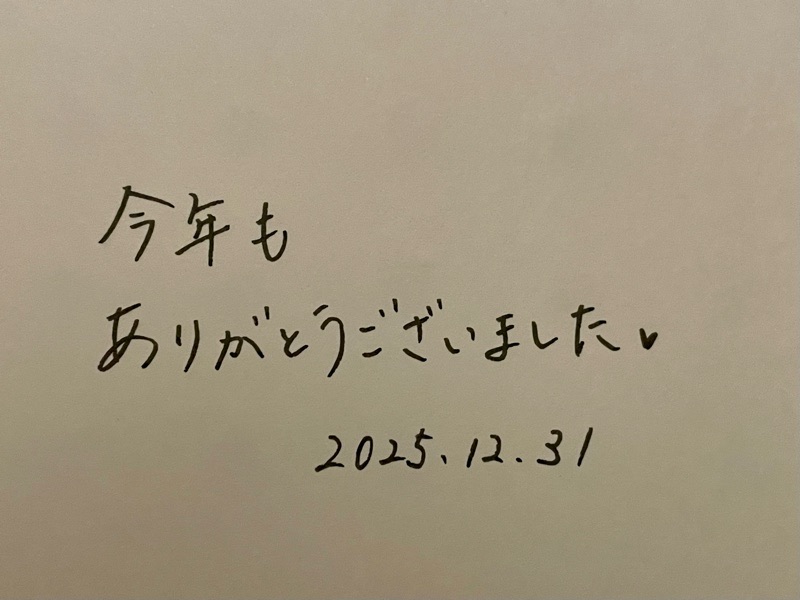 今年も
ありがとうございました♥
2025.12.31